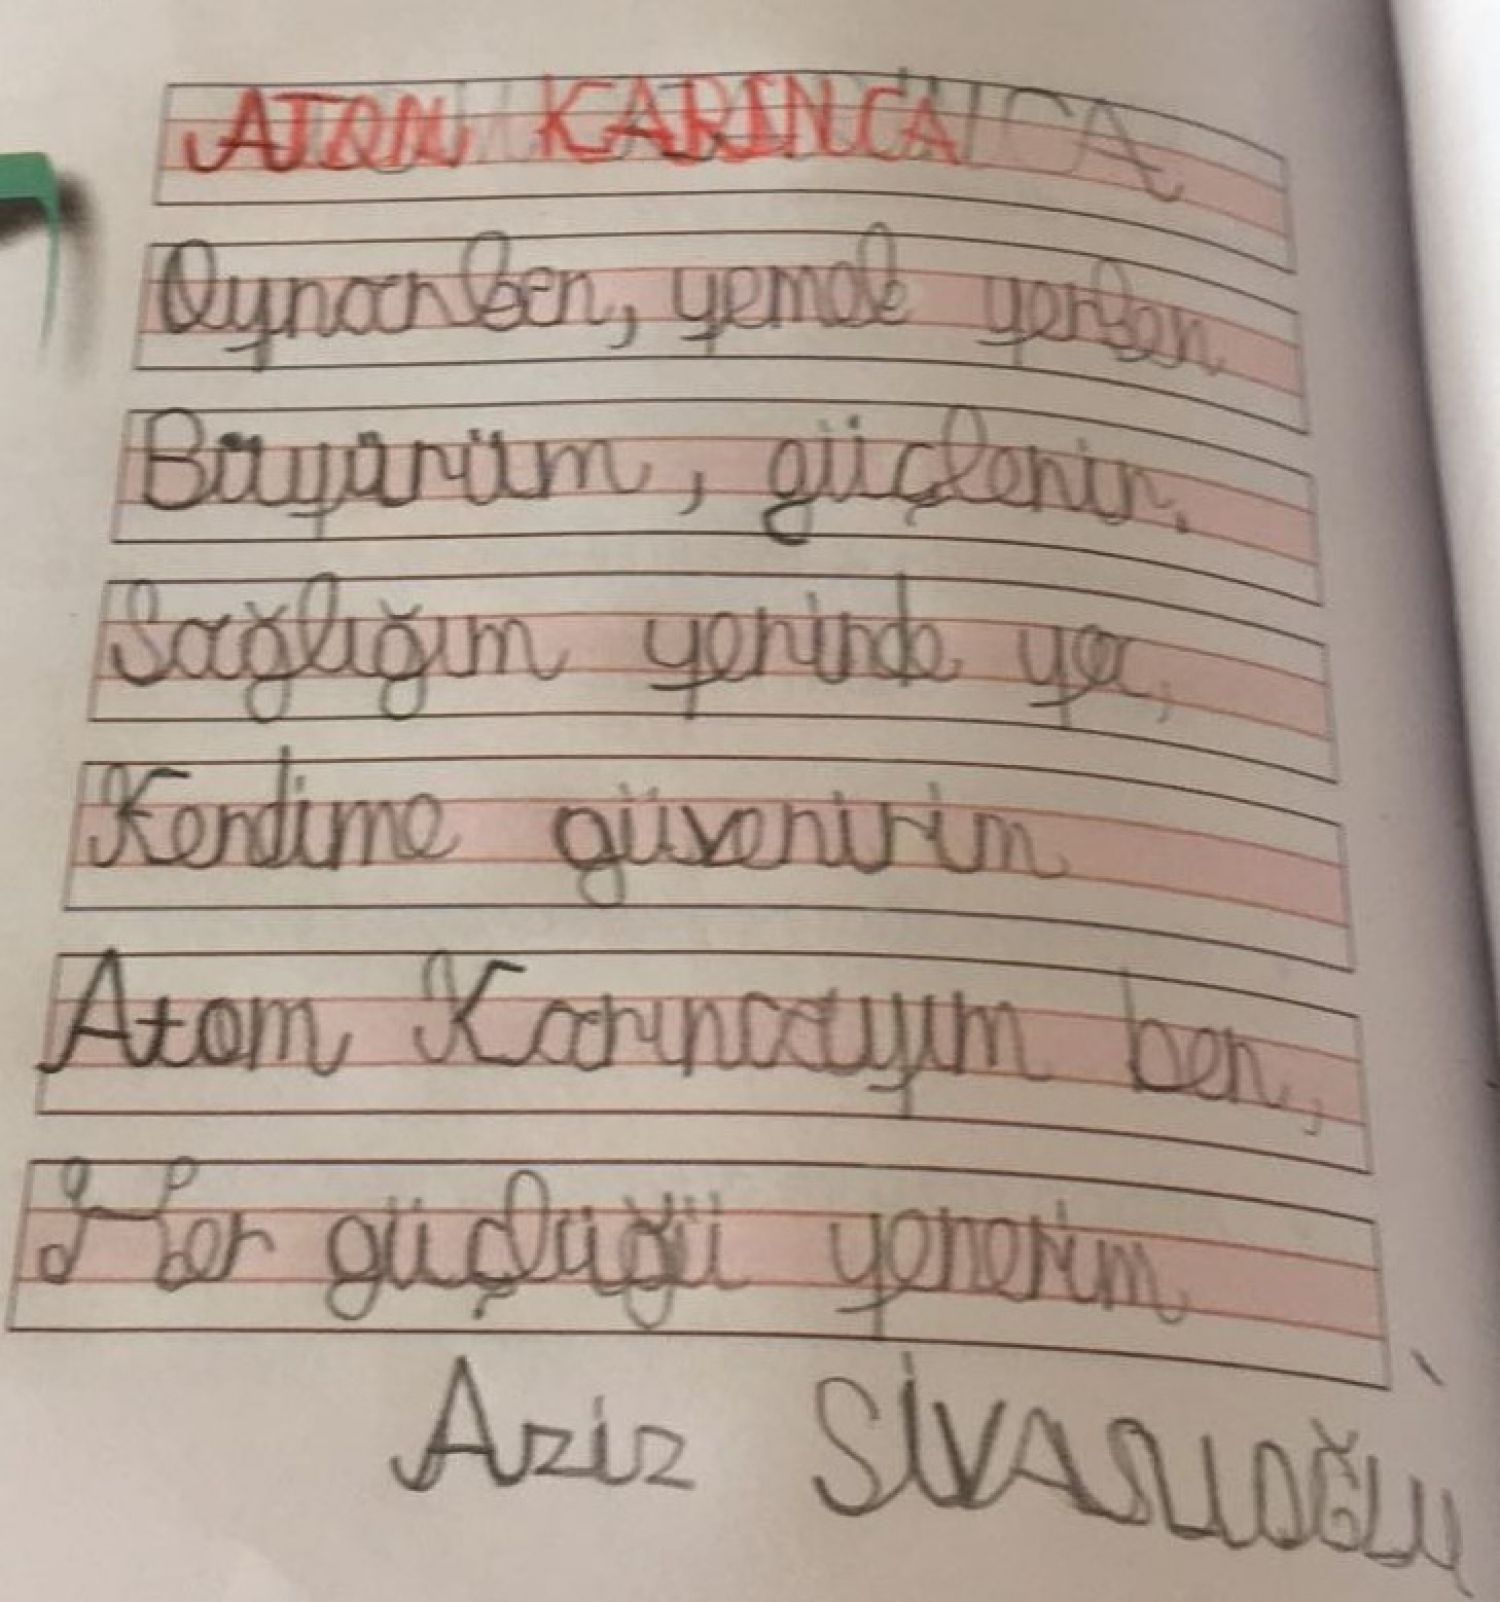 ATOM KARINCA
Oynarken, yemek yerken
Büyürüm, güçlenir,
Sağlığım yerinde ya,
Kendime güvenirim
Atom Karıncayım ben,
Her güçlüğü yenerim
Aziz SİVASLIOĞLU